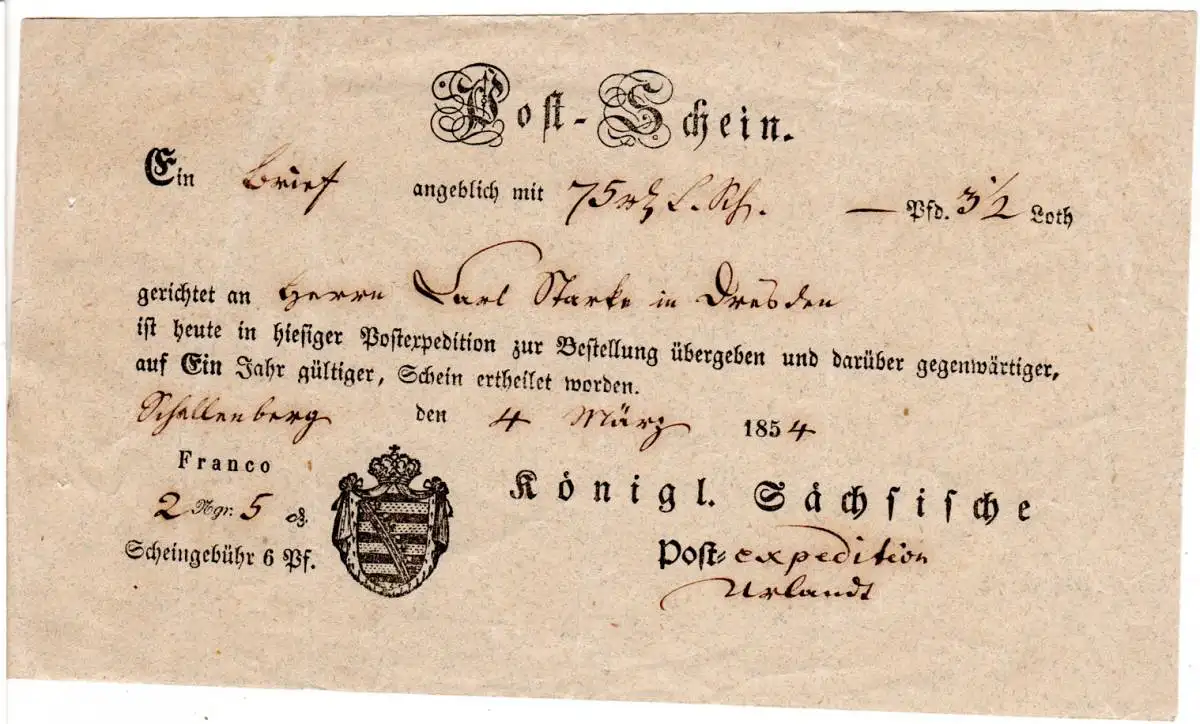 Post-Schein.
Ein Brief angeblich mit 75 rℓ C. Sch. — Pfd. 3½ Loth
gerichtet an Herrn Carl Starke in Dresden
ist heute in hiesiger Postexpedition zur Bestellung übergeben und darüber gegenwärtiger,
auf Ein Jahr gültiger, Schein ertheilet worden.
Schellenberg den 4 März 1854
Franco
2 Ngr. 5 ₰.
Scheingebühr 6 Pf.
Königl. Sächsische
Post-expedition
Urlandt